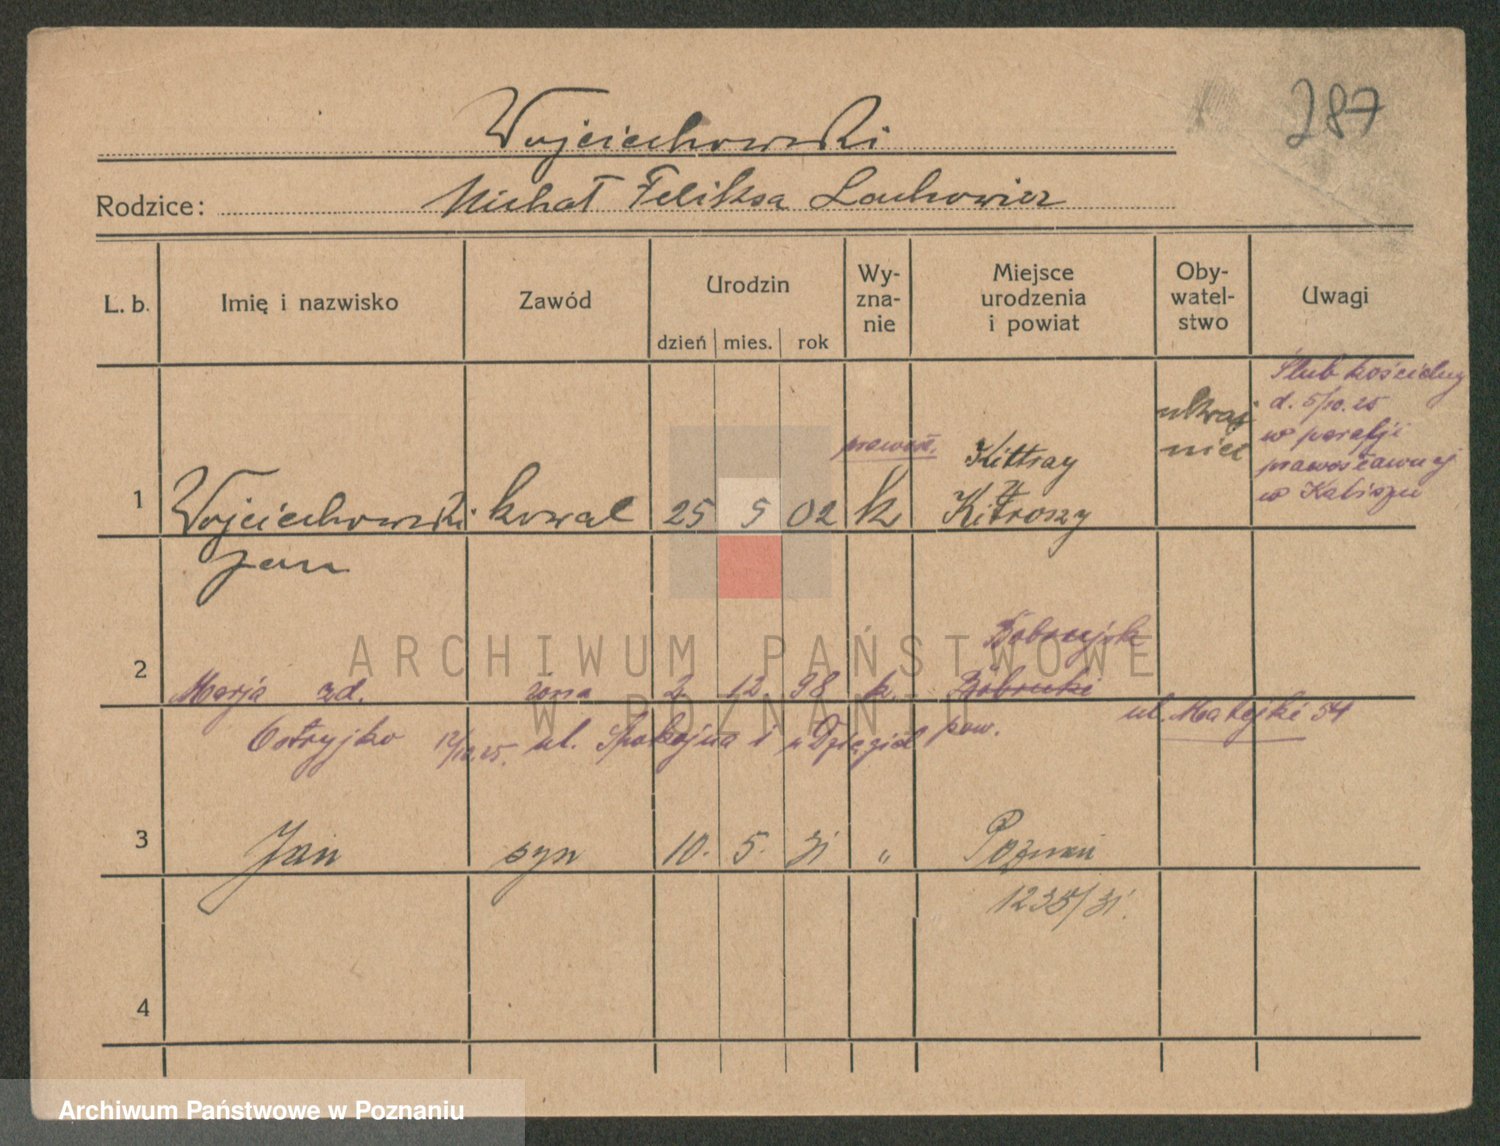 287
Wojciechowski
Rodzice: Michał Feliksa Lachowicz
L. b. Imię i nazwisko Zawód Urodzin dzień mies. rok Wy-zna-nie Miejsce urodzenia i powiat Oby-watel-stwo Uwagi
Ślub kościelny
d. 5/10.25
w parafji
prawosławnej
w Kaliszu
ukraj
niec
prawosł.
Kittray
1 Wojciechowski kowal 25 5 02 k Kitroszy
Jan
Bobrujsk
2 Marja zd. żona 2 12 98 k. Bobruki
Ostryjko 12/12.25. ul. Spokojna i pow. ul. Matejki 54
3 Jan syn 10. 5. 31 " Poznań
1235/31.
4
ARCHIWUM PAŃSTWOWE
W POZNANIU
Archiwum Państwowe w Poznaniu